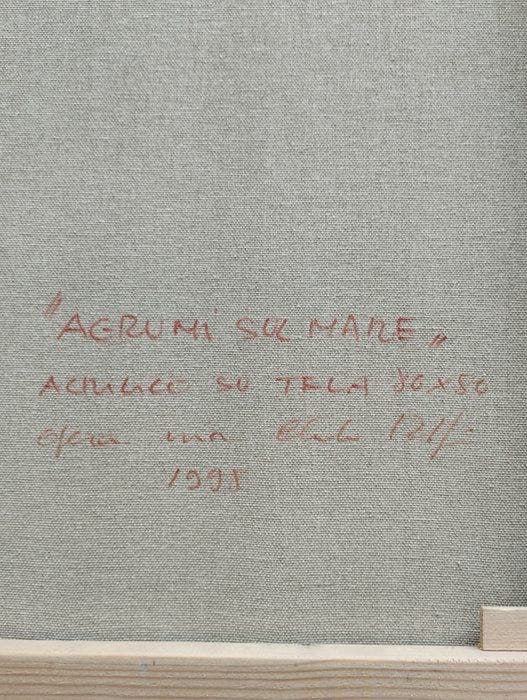 "AGRUMI SUL MARE"
ACRILICO SU TELA 80X50
opera
1995